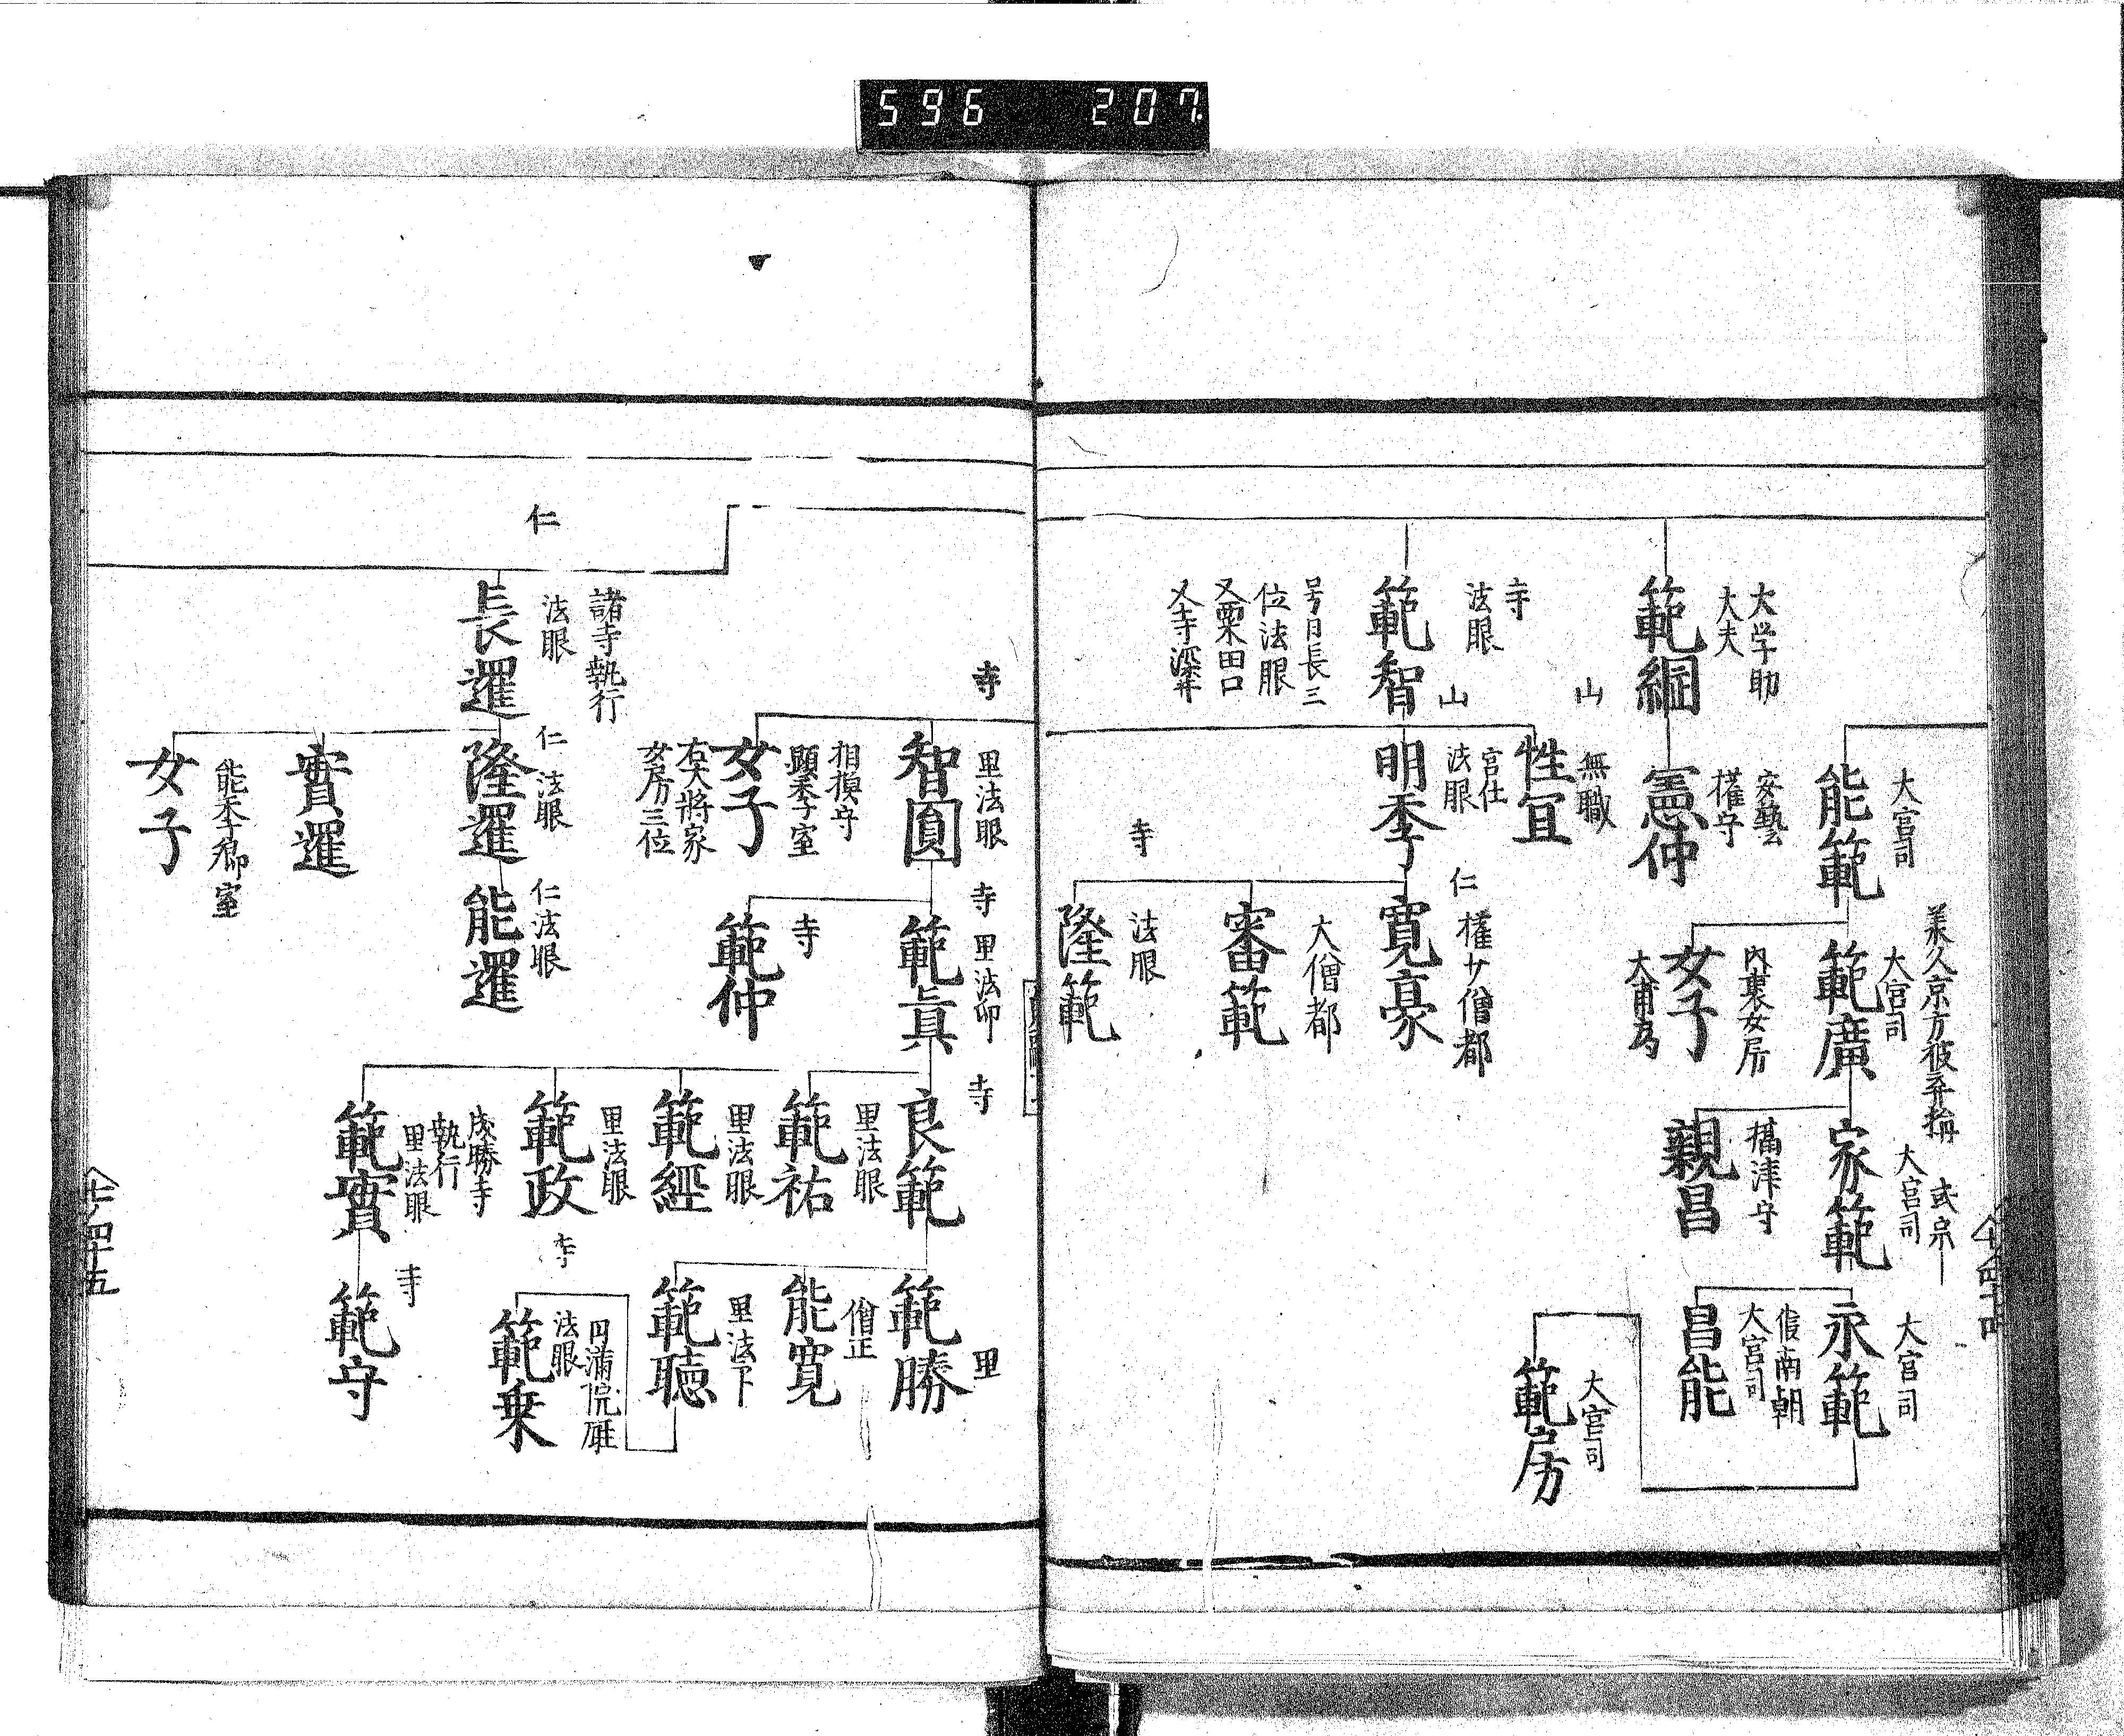 596 207
大学助
大夫
範綱
寺
法眼
範智
号日長三
位法眼
又粟田口
又寺深井
大宮司
能範
安藝
権守
憲仲
山
無職
性宜
山
宮仕
法眼
明季
承久京方被弃捐
大宮司
範廣
内裏女房
女子
仁
権少僧都
寛豪
大僧都
審範
寺
法眼
隆範
大宮司
家範
摂津守
親昌
大宮司
永範
南朝
大宮司
昌能
大宮司
範房
仁
諸寺執行
法眼
長暹
寺
里法眼
智圓
相摸守
顕季室
女子
右大将家
女房三位
仁
法眼
隆暹
實暹
能季卿室
女子
寺
里法印
範眞
寺
範仲
仁法眼
能暹
寺
良範
里法眼
範祐
里法眼
範經
里法眼
範政
成勝寺
執行
里法眼
範實
里
範勝
僧正
能寛
里法下
範聴
寺
円満院
法眼
範乗
寺
範守
四十五